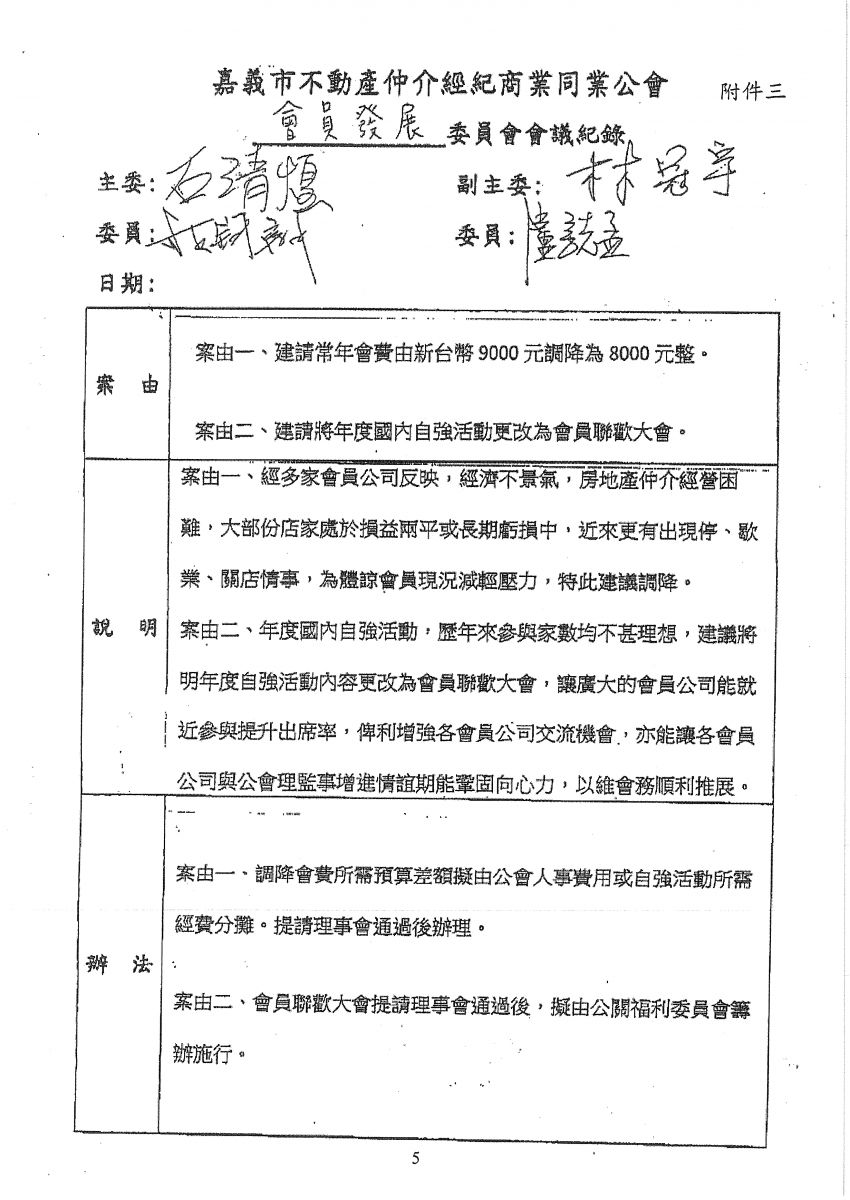 嘉義市不動產仲介經紀商業同業公會
附件三
會員發展委員會會議紀錄
主委：石靖
副主委：林冠宇
委員：
委員：
日期：
案由
案由一、建請常年會費由新台幣9000元調降為8000元整。
案由二、建請將年度國內自強活動更改為會員聯歡大會。
說明
案由一、經多家會員公司反映，經濟不景氣，房地產仲介經營困
難，大部份店家處於損益兩平或長期虧損中，近來更有出現停、歇
業、關店情事，為體諒會員現況減輕壓力，特此建議調降。
案由二、年度國內自強活動，歷年來參與家數均不甚理想，建議將
明年度自強活動內容更改為會員聯歡大會，讓廣大的會員公司能就
近參與提升出席率，俾利增強各會員公司交流機會，亦能讓各會員
公司與公會理監事增進情誼期能鞏固向心力，以維會務順利推展。
辦法
案由一、調降會費所需預算差額擬由公會人事費用或自強活動所需
經費分攤。提請理事會通過後辦理。
案由二、會員聯歡大會提請理事會通過後，擬由公關福利委員會籌
辦施行。
5